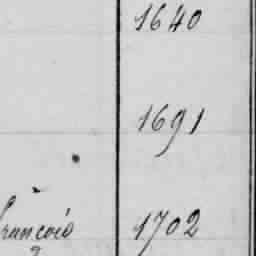 1640
1691
françois 1702